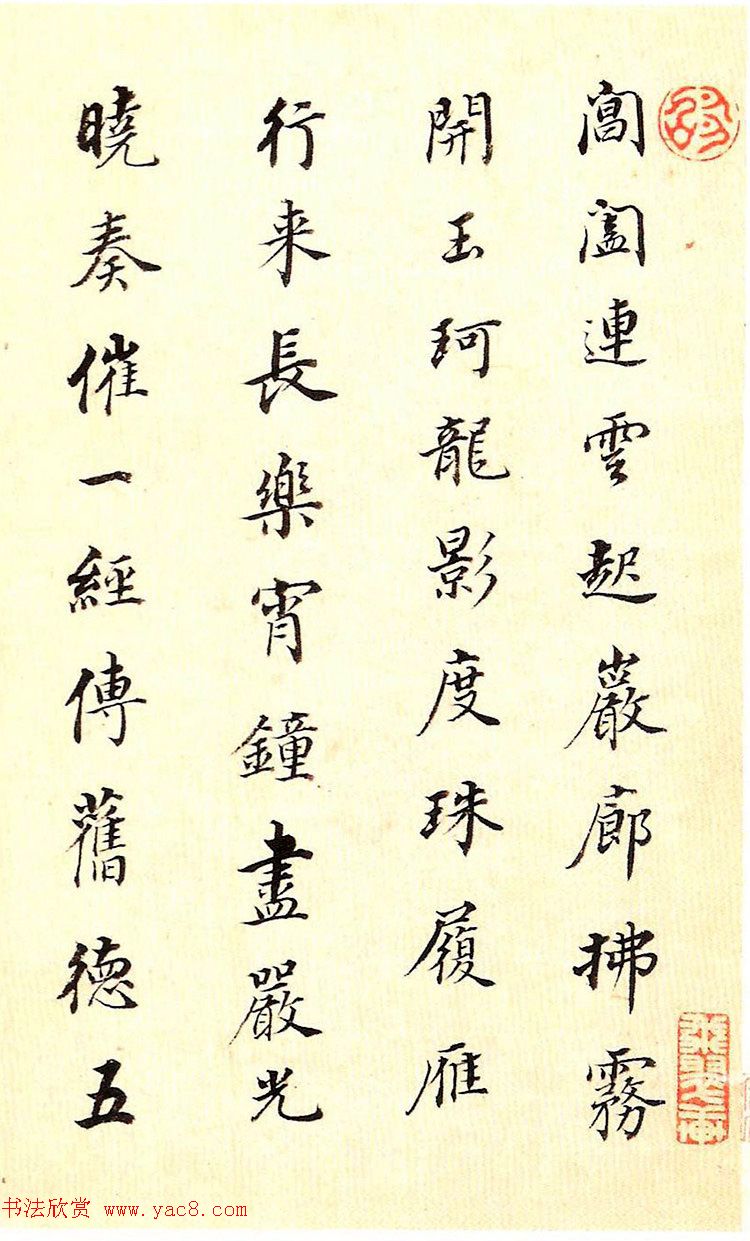 閶闔連雲起巖廊拂霧
開玉珂龍影度珠履雁
行来長樂宵鐘盡嚴光
曉奏催一經傳舊德五
书法欣赏 www.yac8.com